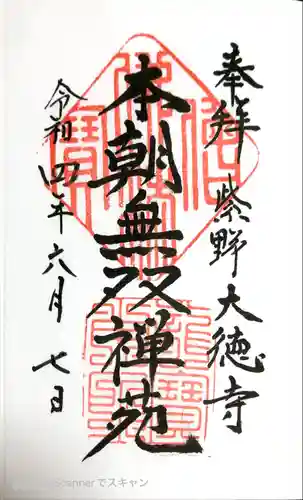 奉拝 紫野大徳寺
本朝無双禅苑
令和四年六月七日
scannerでスキャン